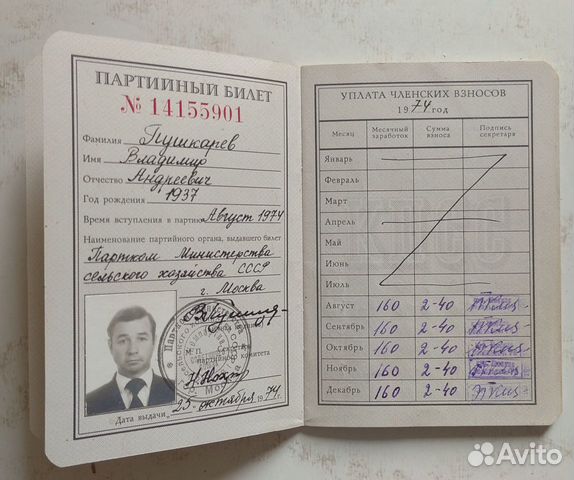 ПАРТИЙНЫЙ БИЛЕТ
№ 14155901
Фамилия Пушкарев
Имя Владимир
Отчество Андреевич
Год рождения 1937
Время вступления в партию Август 1974
Наименование партийного органа, выдавшего билет
Партком Министерства
сельского хозяйства СССР
г. Москва
М. П. Секретарь
партийного комитета
Дата выдачи 25 октября 1974 г.
УПЛАТА ЧЛЕНСКИХ ВЗНОСОВ
1974 год
Месяц Месячный заработок Сумма взноса Подпись секретаря
Январь
Февраль
Март
Апрель
Май
Июнь
Июль
Август 160 2-40
Сентябрь 160 2-40
Октябрь 160 2-40
Ноябрь 160 2-40
Декабрь 160 2-40
Avito